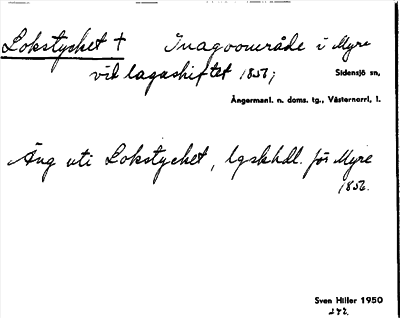 Lokstycket † Inagoområde i Myre
vid lagaskiftet 1856; Sidensjö sn,
Ångermanl. n. doms. tg., Västernorrl. l.
Äng uti Lokstycket, lgskhdl. för Myre
1856.
Sven Hiller 1950
272.